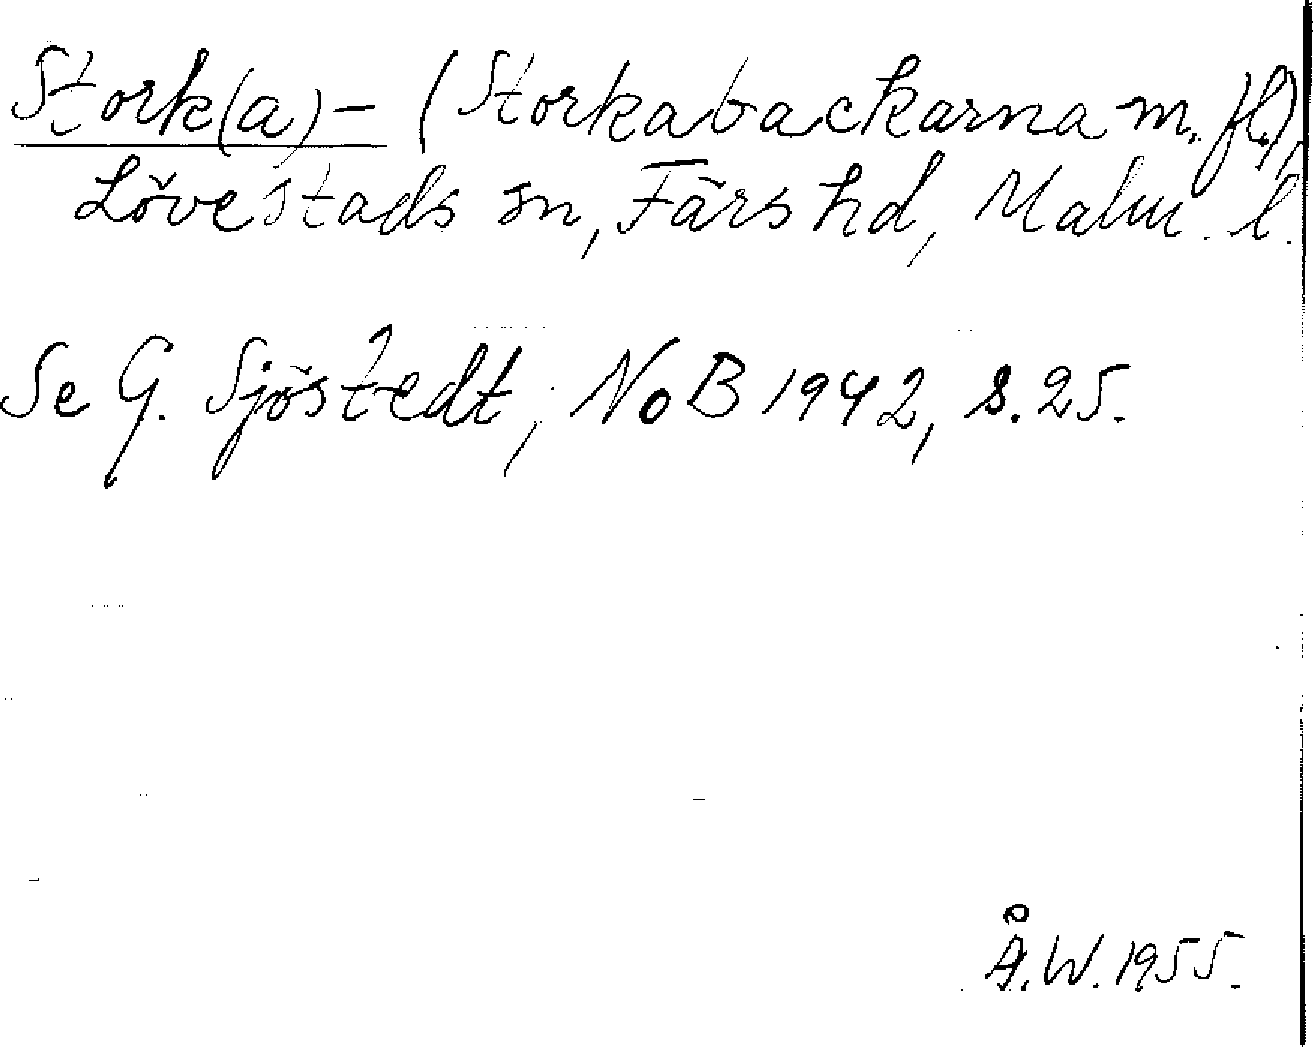 Stork(a)- (Storkabackarna m. fl.),
Lövestads sn, Färs hd, Malm. l.
Se G. Sjöstedt, NoB 1942, s. 25.
Å.W. 1955.